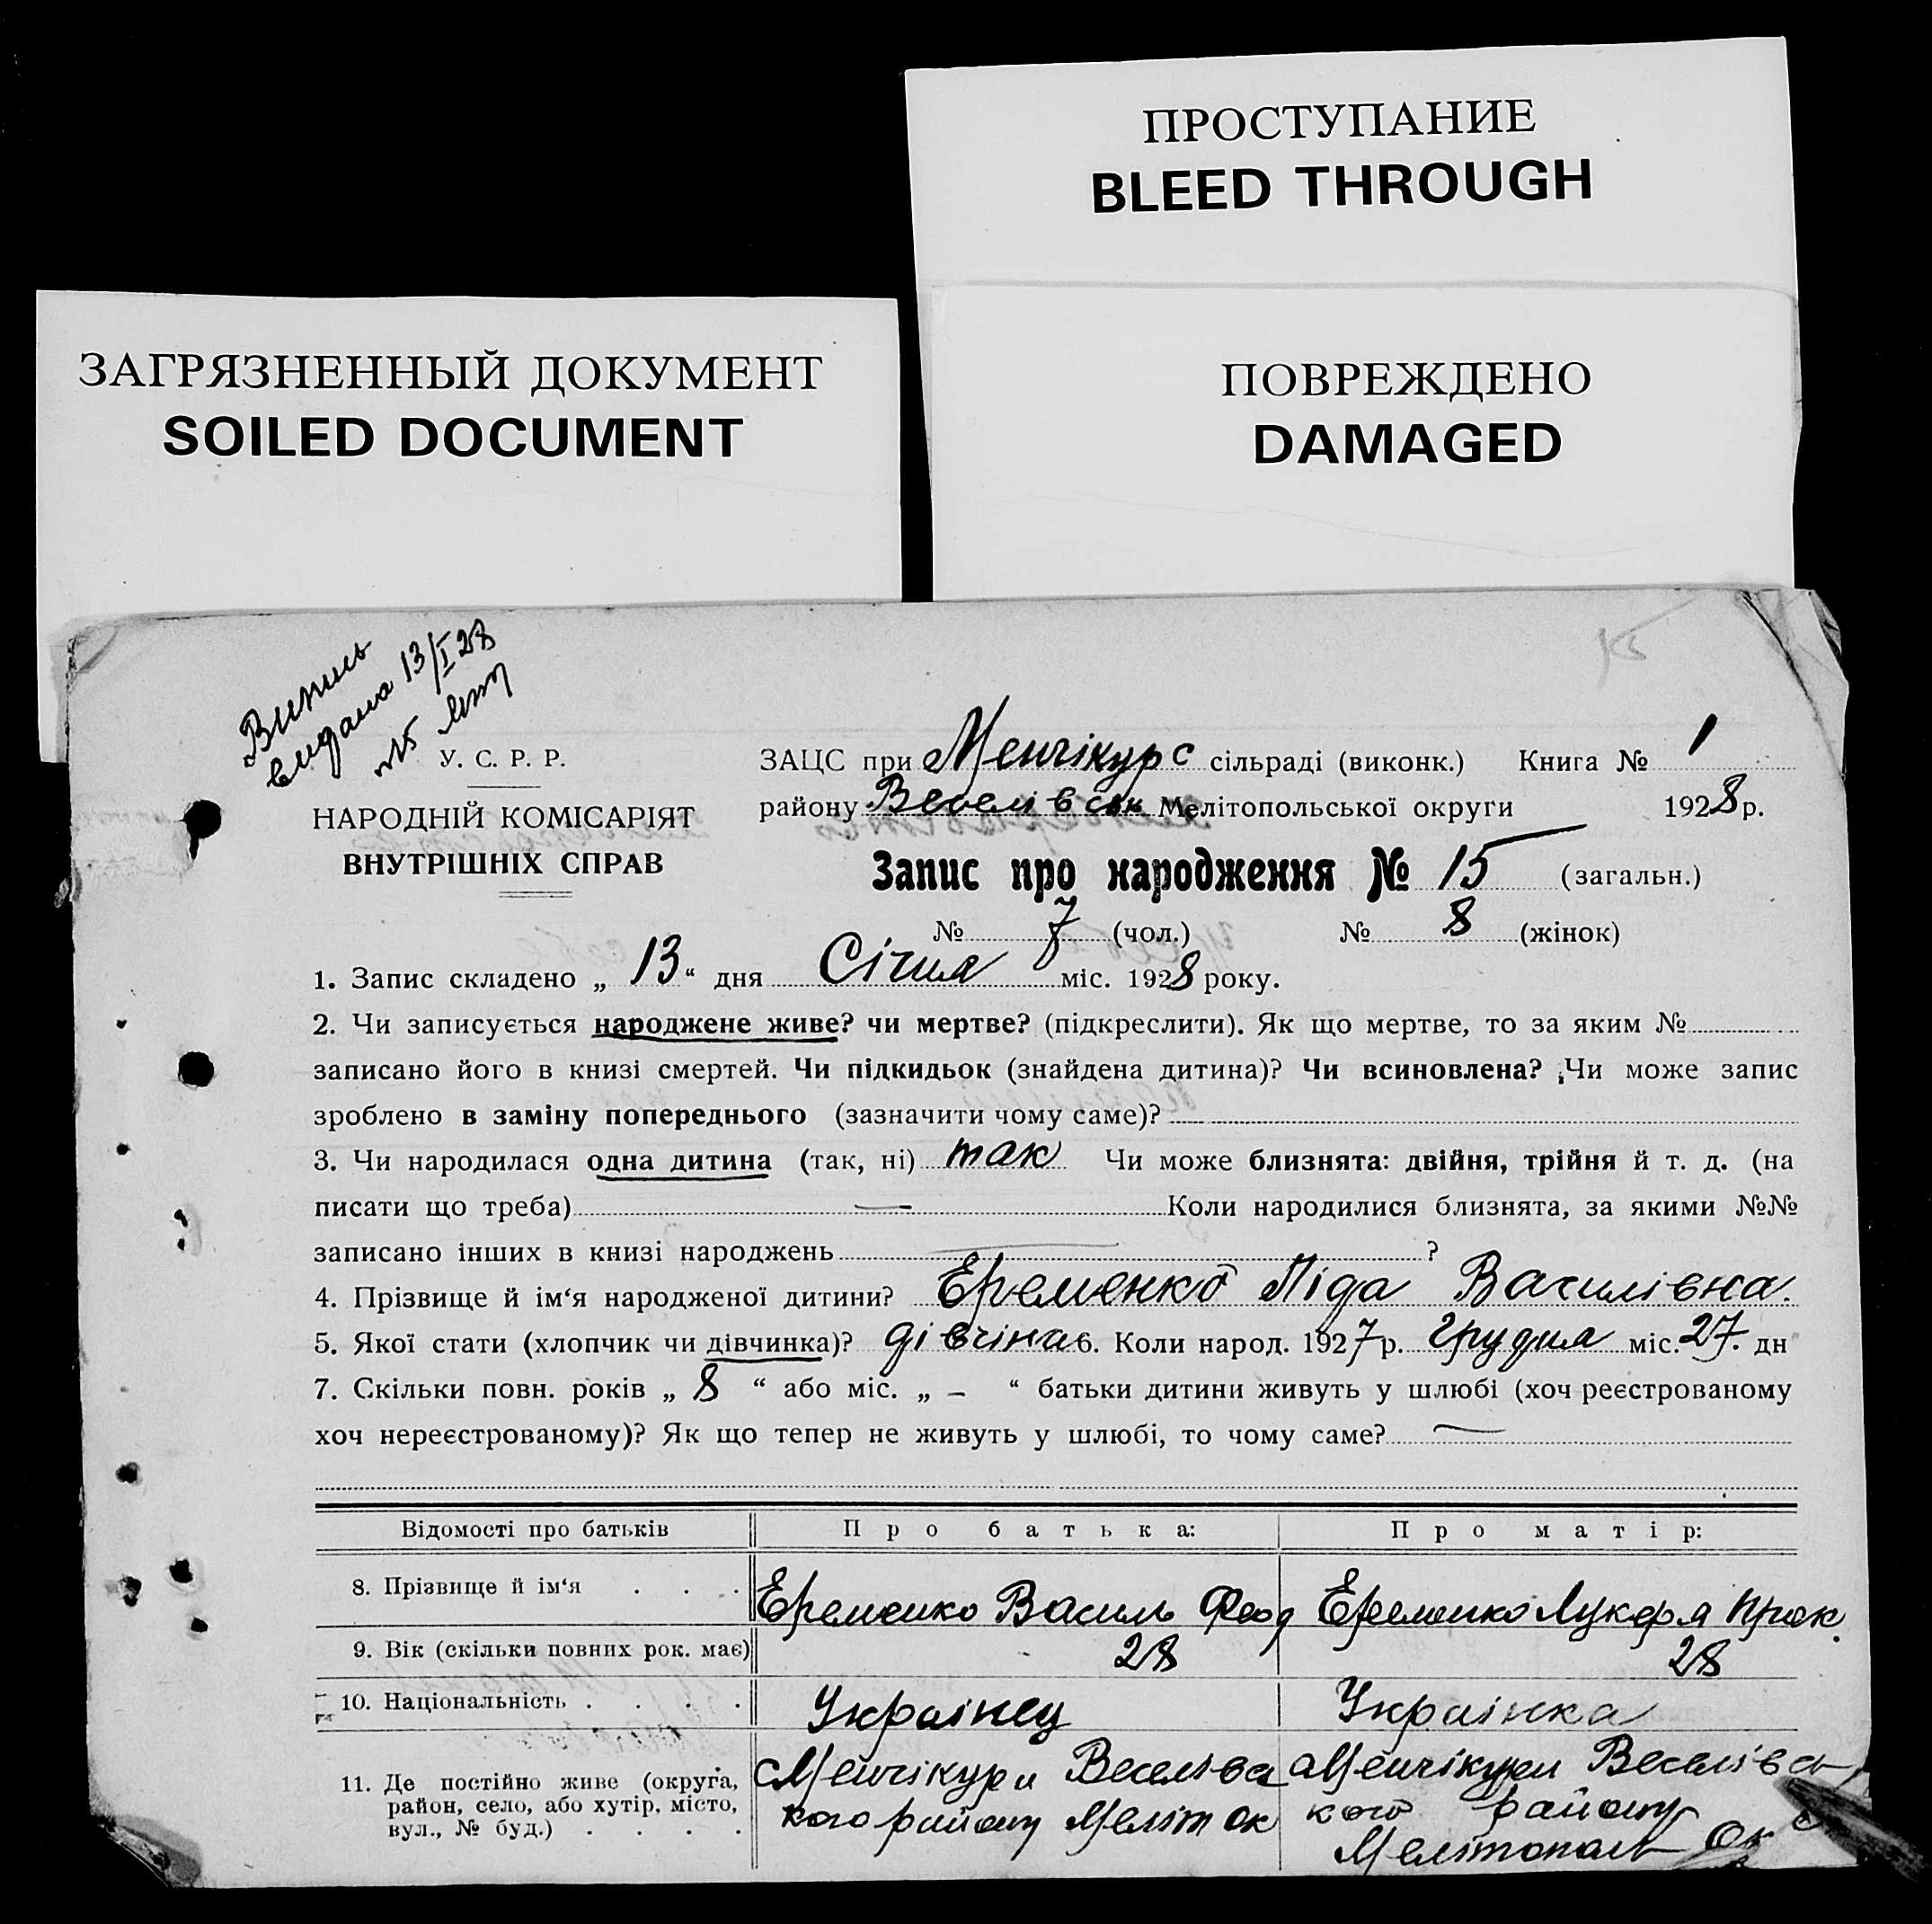 ПРОСТУПАНИЕ
BLEED THROUGH
ЗАГРЯЗНЕННЫЙ ДОКУМЕНТ
SOILED DOCUMENT
ПОВРЕЖДЕНО
DAMAGED
15
Випись
видана 13/I 28
№15
У. С. Р. Р.
НАРОДНІЙ КОМІСАРІЯТ
ВНУТРІШНІХ СПРАВ
ЗАЦС при Менчікурс сільраді (виконк.) Книга № 1
району Веселівськ Мелітопольської округи 1928 р.
Запис про народження № 15 (загальн.)
№ 7 (чол.) № 8 (жінок)
1. Запис складено „ 13 “ дня Січня міс. 1928 року.
2. Чи записується народжене живе? чи мертве? (підкреслити). Як що мертве, то за яким №
записано його в книзі смертей. Чи підкидьок (знайдена дитина)? Чи всиновлена? Чи може запис
зроблено в заміну попереднього (зазначити чому саме)?
3. Чи народилася одна дитина (так, ні) так Чи може близнята: двійня, трійня й т. д. (на
писати що треба) — Коли народилися близнята, за якими №№
записано інших в книзі народжень — ?
4. Прізвище й ім‘я народженої дитини? Еременко Ліда Василівна.
5. Якої стати (хлопчик чи дівчинка)? дівчіна 6. Коли народ. 1927 р. грудня міс. 27. дн
7. Скільки повн. років „ 8 “ або міс. „ – “ батьки дитини живуть у шлюбі (хоч реєстрованому
хоч нереєстрованому)? Як що тепер не живуть у шлюбі, то чому саме? —
Відомості про батьків Про батька: Про матір:
8. Прізвище й ім‘я . . . Еременко Василь Феод Еременко Лукеря Прок.
9. Вік (скільки повних рок. має) 28 28
10. Національність . . . . Українец Українка
11. Де постійно живе (округа,
район, село, або хутір, місто,
вул., № буд.) . . . .
Менчікури Веселівс
кого району Меліт ок
Менчікури Веселівсь
кого району
Мелітополь Ок